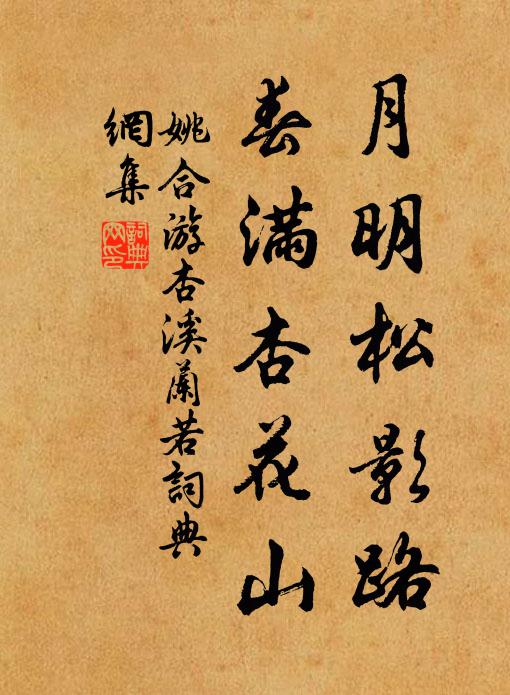 月明松影路
春滿杏花山
姚合游杏溪蘭若詞典
網集
詞典
网印